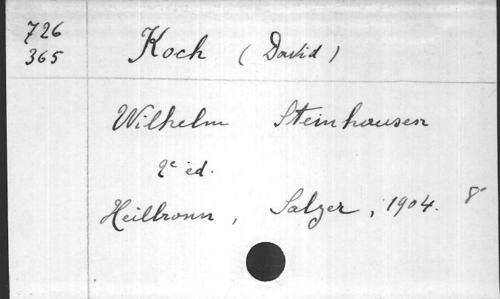 726
365
Koch (David)
Wilhelm Steinhausen
2e ed.
Heilbronn, Salzer, 1904. 8°